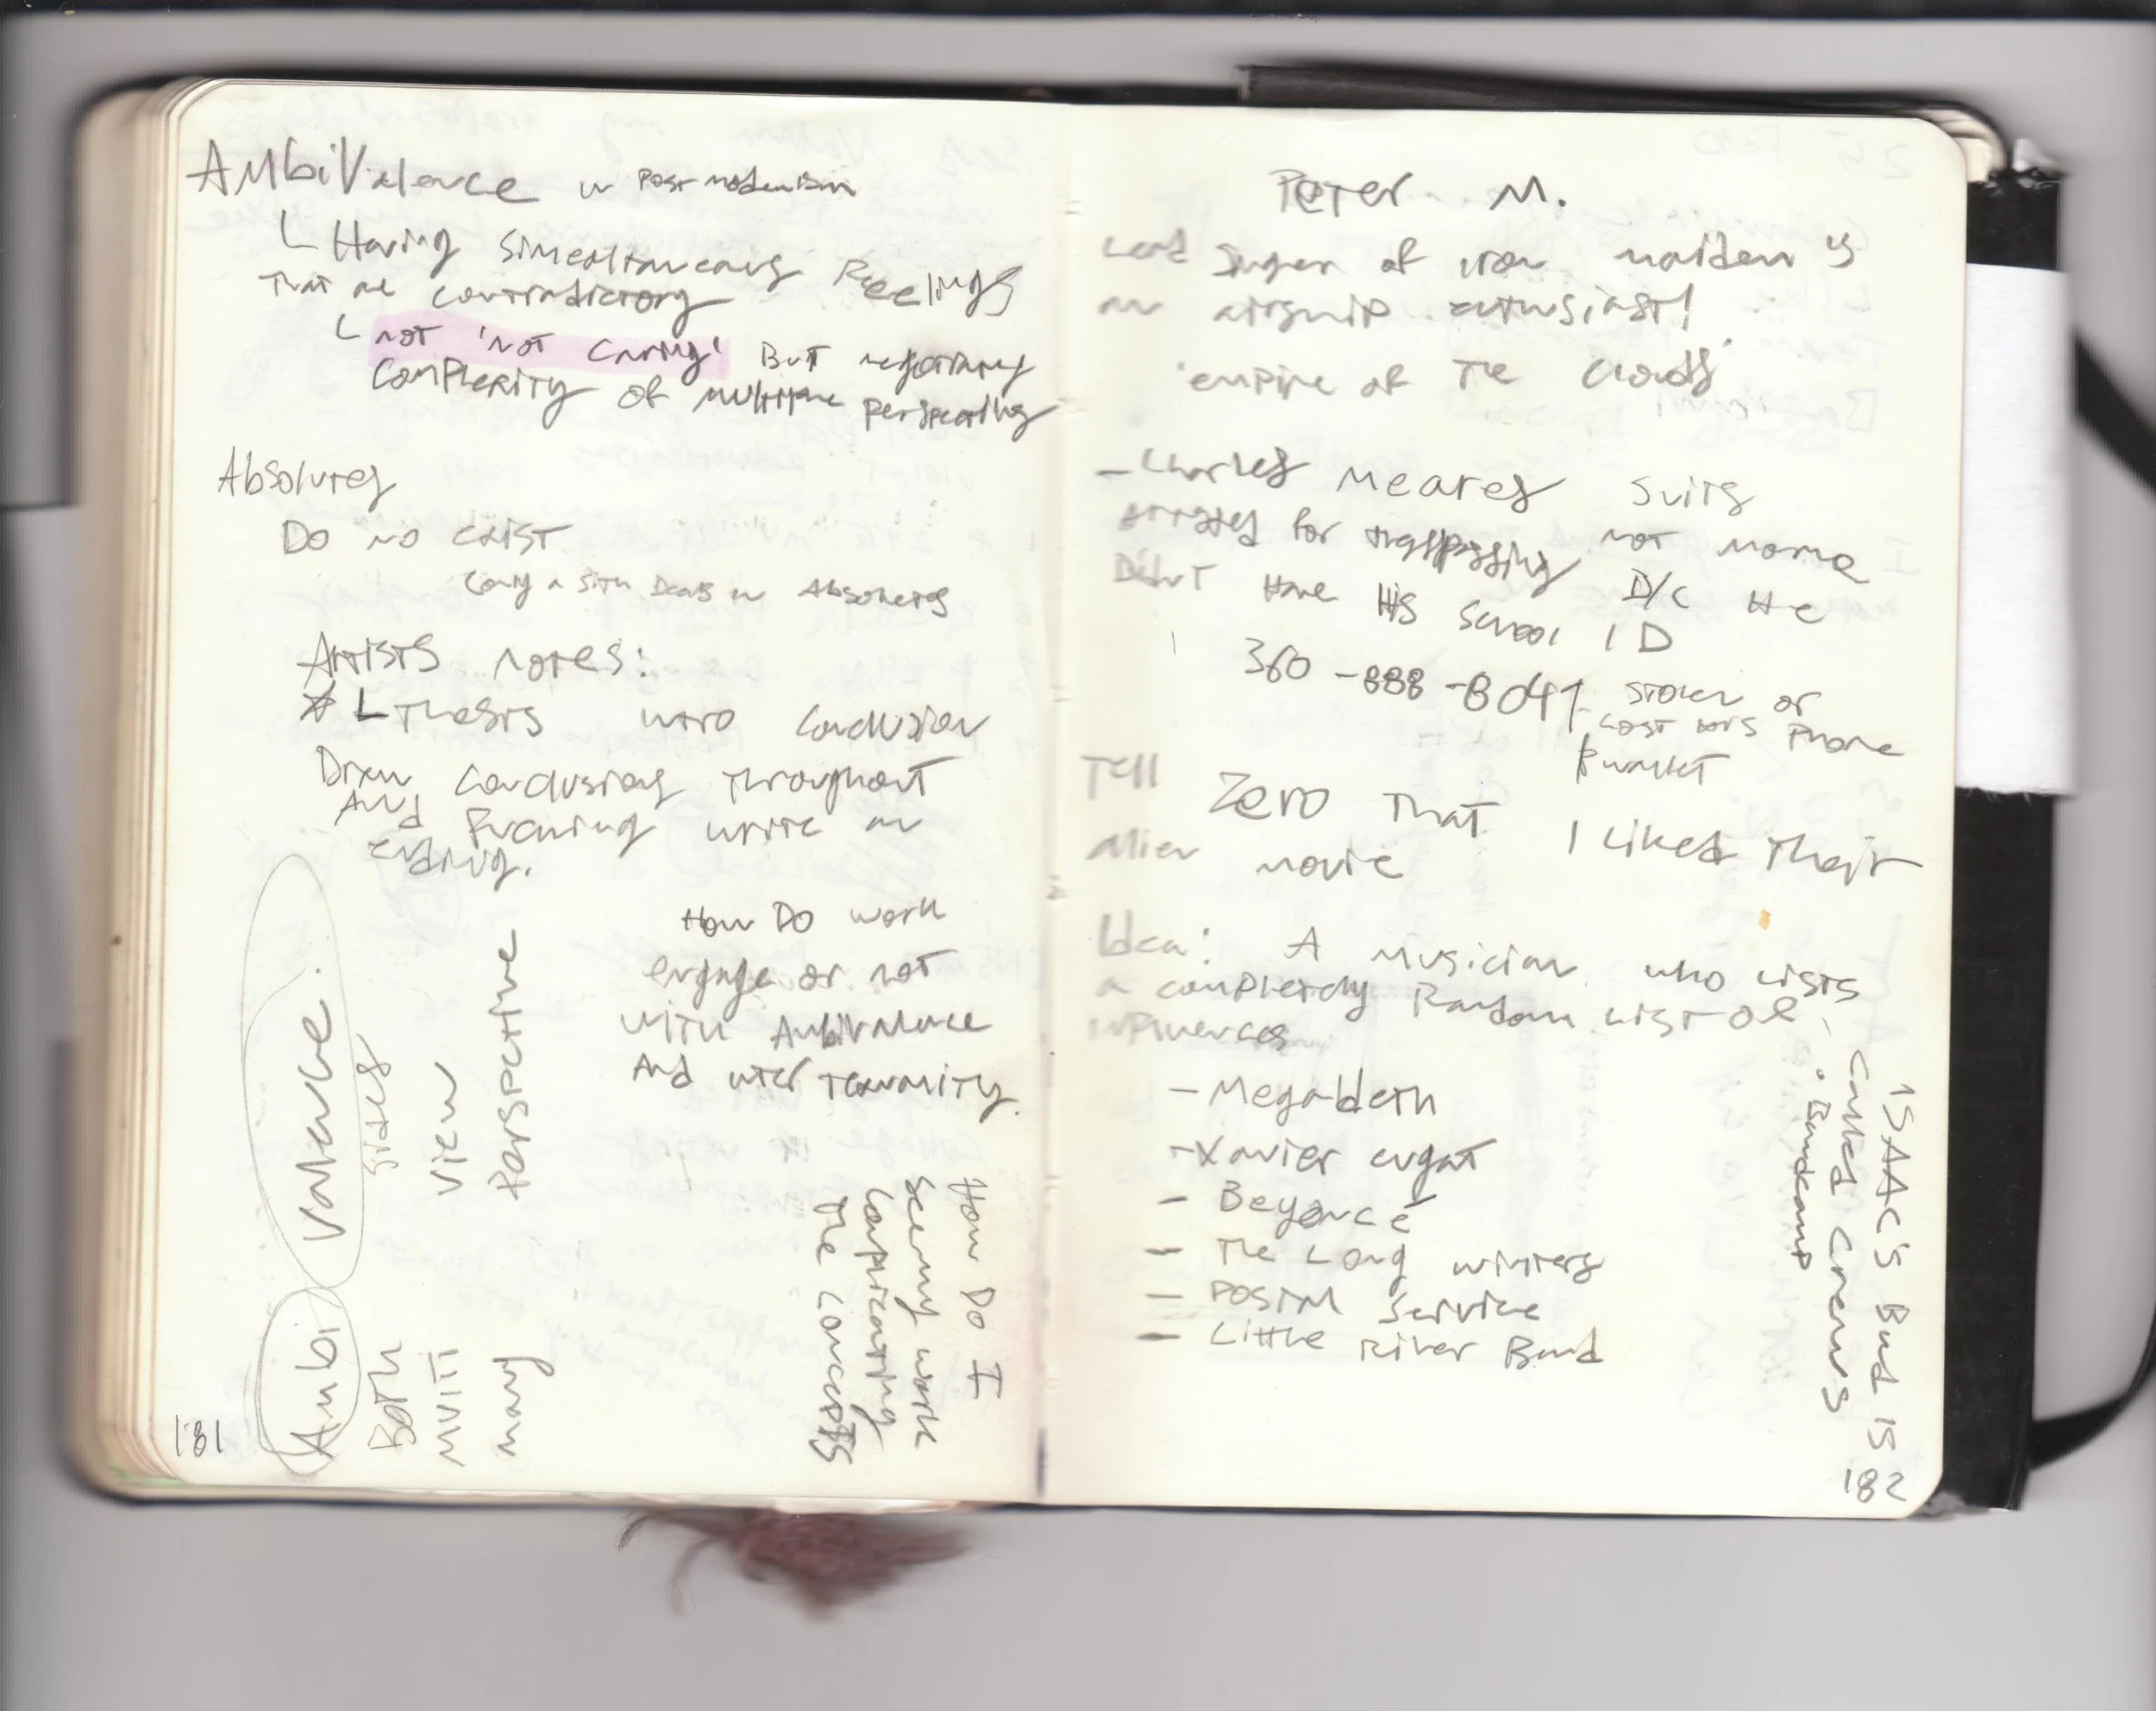 AMbiValence in Post modernism
L Having simeoltaneous Feelings
That are contradictory
L not 'not caring' But negotiating
Complexity of multiple perspectives
Absolutes
Do no exist
Only a Sith Deals in Absolutes
Artists notes:
* L Thesis into conclusion
Draw conclusions throughout
And Fucking write an
ending.
How Do work
engage or not
with Ambivalence
And inter textuality.
Ambi valence
Both sides
multi view
many perspective
How Do I
seeing work
complicating
The concepts
181
Peter M.
Lead Singer of iron maiden is
an airship enthusiast!
'empire of The Clouds'
- Charles Meares suits
arrested for tresspassing not norma
Didn't Have His School ID D/C He
360-888-8041 stolen or
Lost his phone
& wallet
Tell Zero That I Liked Their
Alien movie
Idea: A Musician who lists
a completely Random list of
influences
- Megadeth
- Xavier cugat
- Beyoncé
- The Long winters
- Postal Service
- Little River Band
ISAAC'S Band is
called Crews
• Bandcamp
182